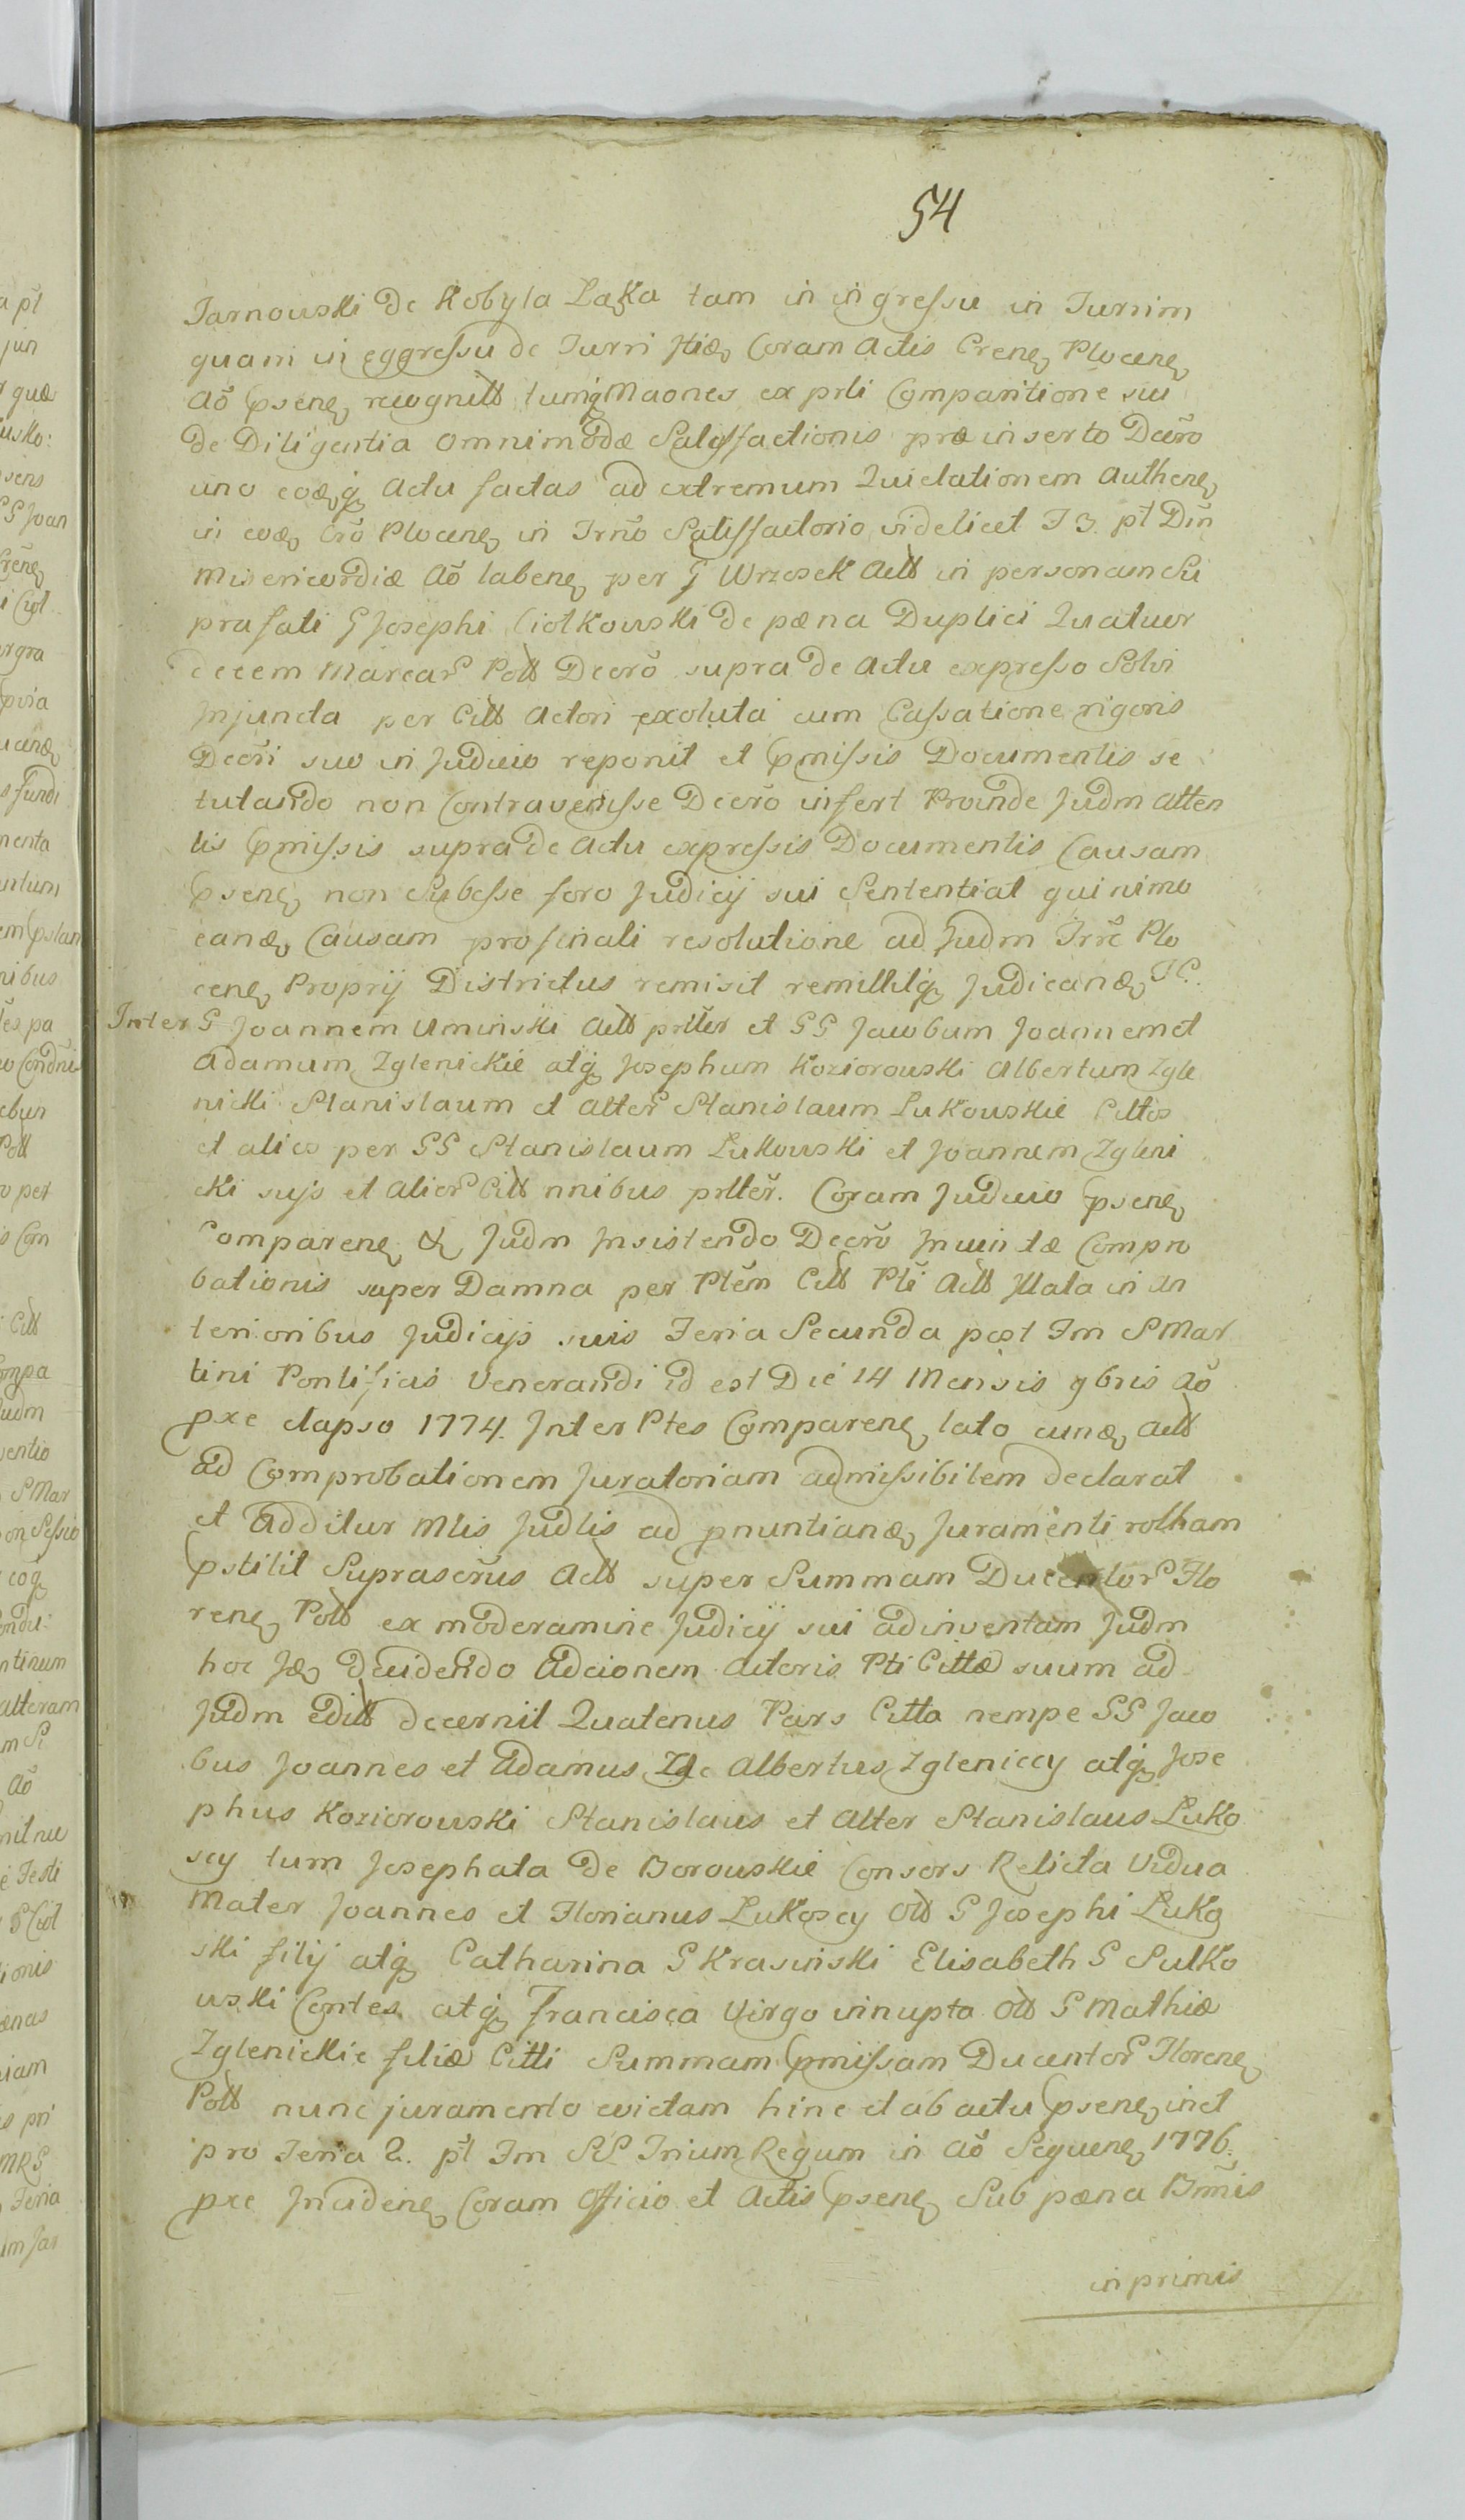 54
Tarnouski de Kobyla Laka tam in ingressu in Turrim
quam in eggressu de Turri Coram Actis Crens Plocens
Aõ psens recognitt tumq Maones ex prli Comparitione sui
de Diligentia omnimodæ Satisfactionis præinserto Decrõ
uno eodq Actu factas ad extremum Quietationem Authene
in eod Crõ Plocens in Trnõ Satisfactorio videlicet F 3. pt Dm̃
Misericordiæ Aõ labens per G Wrzosek Actt in personam Sui
præfati G Josephi Ciołkouski de pæna Duplici Quatuor
decem Marcar Poll Decrõ supra de Actu expresso Solvi
Injuncta per Citt Actori exoluta cum Cassatione rigoris
Decri suo in Judicio reponit et pmissis Documentis se
tutando non Contravenisse Decrõ infert Proinde Judm atten
tis pmissis supra de Actu expressis Documentis Causam
psens non Subesse foro Judicij sui Sententiat quinimo
eand Causam pro finali resolutione ad Judm Trrẽ Plo
cens Proprij Districtus remisit remittitq Judicand
Inter G Joannem Uminski Actt prtter et GG Jacobum Joannem et
Adamum Zglenickie atq Josephum Koziorouski Albertum Zgle
nicki Stanislaum et alter Stanislaum Lukouskie Cittos
et alios per GG Stanislaum Lukouski et Joannem Zgleni
cki sujs et alior Citt nnibus prtter. Coram Judicio psens
Comparens & Judm Insistendo Decrõ Compro
bationis super Damna per Ptem Citt Pti Actt Illata in An
terioribus Judicijs suis Feria Secunda post Fm S Mar
tini Pontificis Venerandi id est Die 14 Mensis 9bris Aõ
pxe elapso 1774. Inter Ptes Comparens lato eund Actt
ad Comprobationem Juratoriam admissibilem declarat
et Additur Mlis Judlis ad pnuntiand Juramenti rotham
pstitit Suprascrus Actt super Summam Ducentor Flo
rens Poll ex moderamine Judicij sui adinventam Judm
hoc decidendo Adcionem Actoris Pti Cittæ suum ad
Judm editt decernit Quatenus Pars Citta nempe GG Jaco
bus Joannes et Adamus Albertus Zgleniccy atq Jose
phus Koziorouski Stanislaus et Alter Stanislaus Luko
scy tum Josephata de Borouskie Consors Relicta Vidua
Mater Joannes et Florianus Lukoscy Ott G Josephi Luko
ski filij atq Catharina G Krasinski Elisabeth G Sulko
uski Contes atq Francisca Virgo innupta Ott G Mathiæ
Zglenickie filiæ Citti Summam pmissam Ducentor Florens
Poll nunc juramento evictam hinc et ab actu psens in et
pro Feria 2. pt Fm SS Trium Regum in Aõ Sequens 1776.
pxe Incidens Coram Officio et Actis psens Sub pæna
inprimis